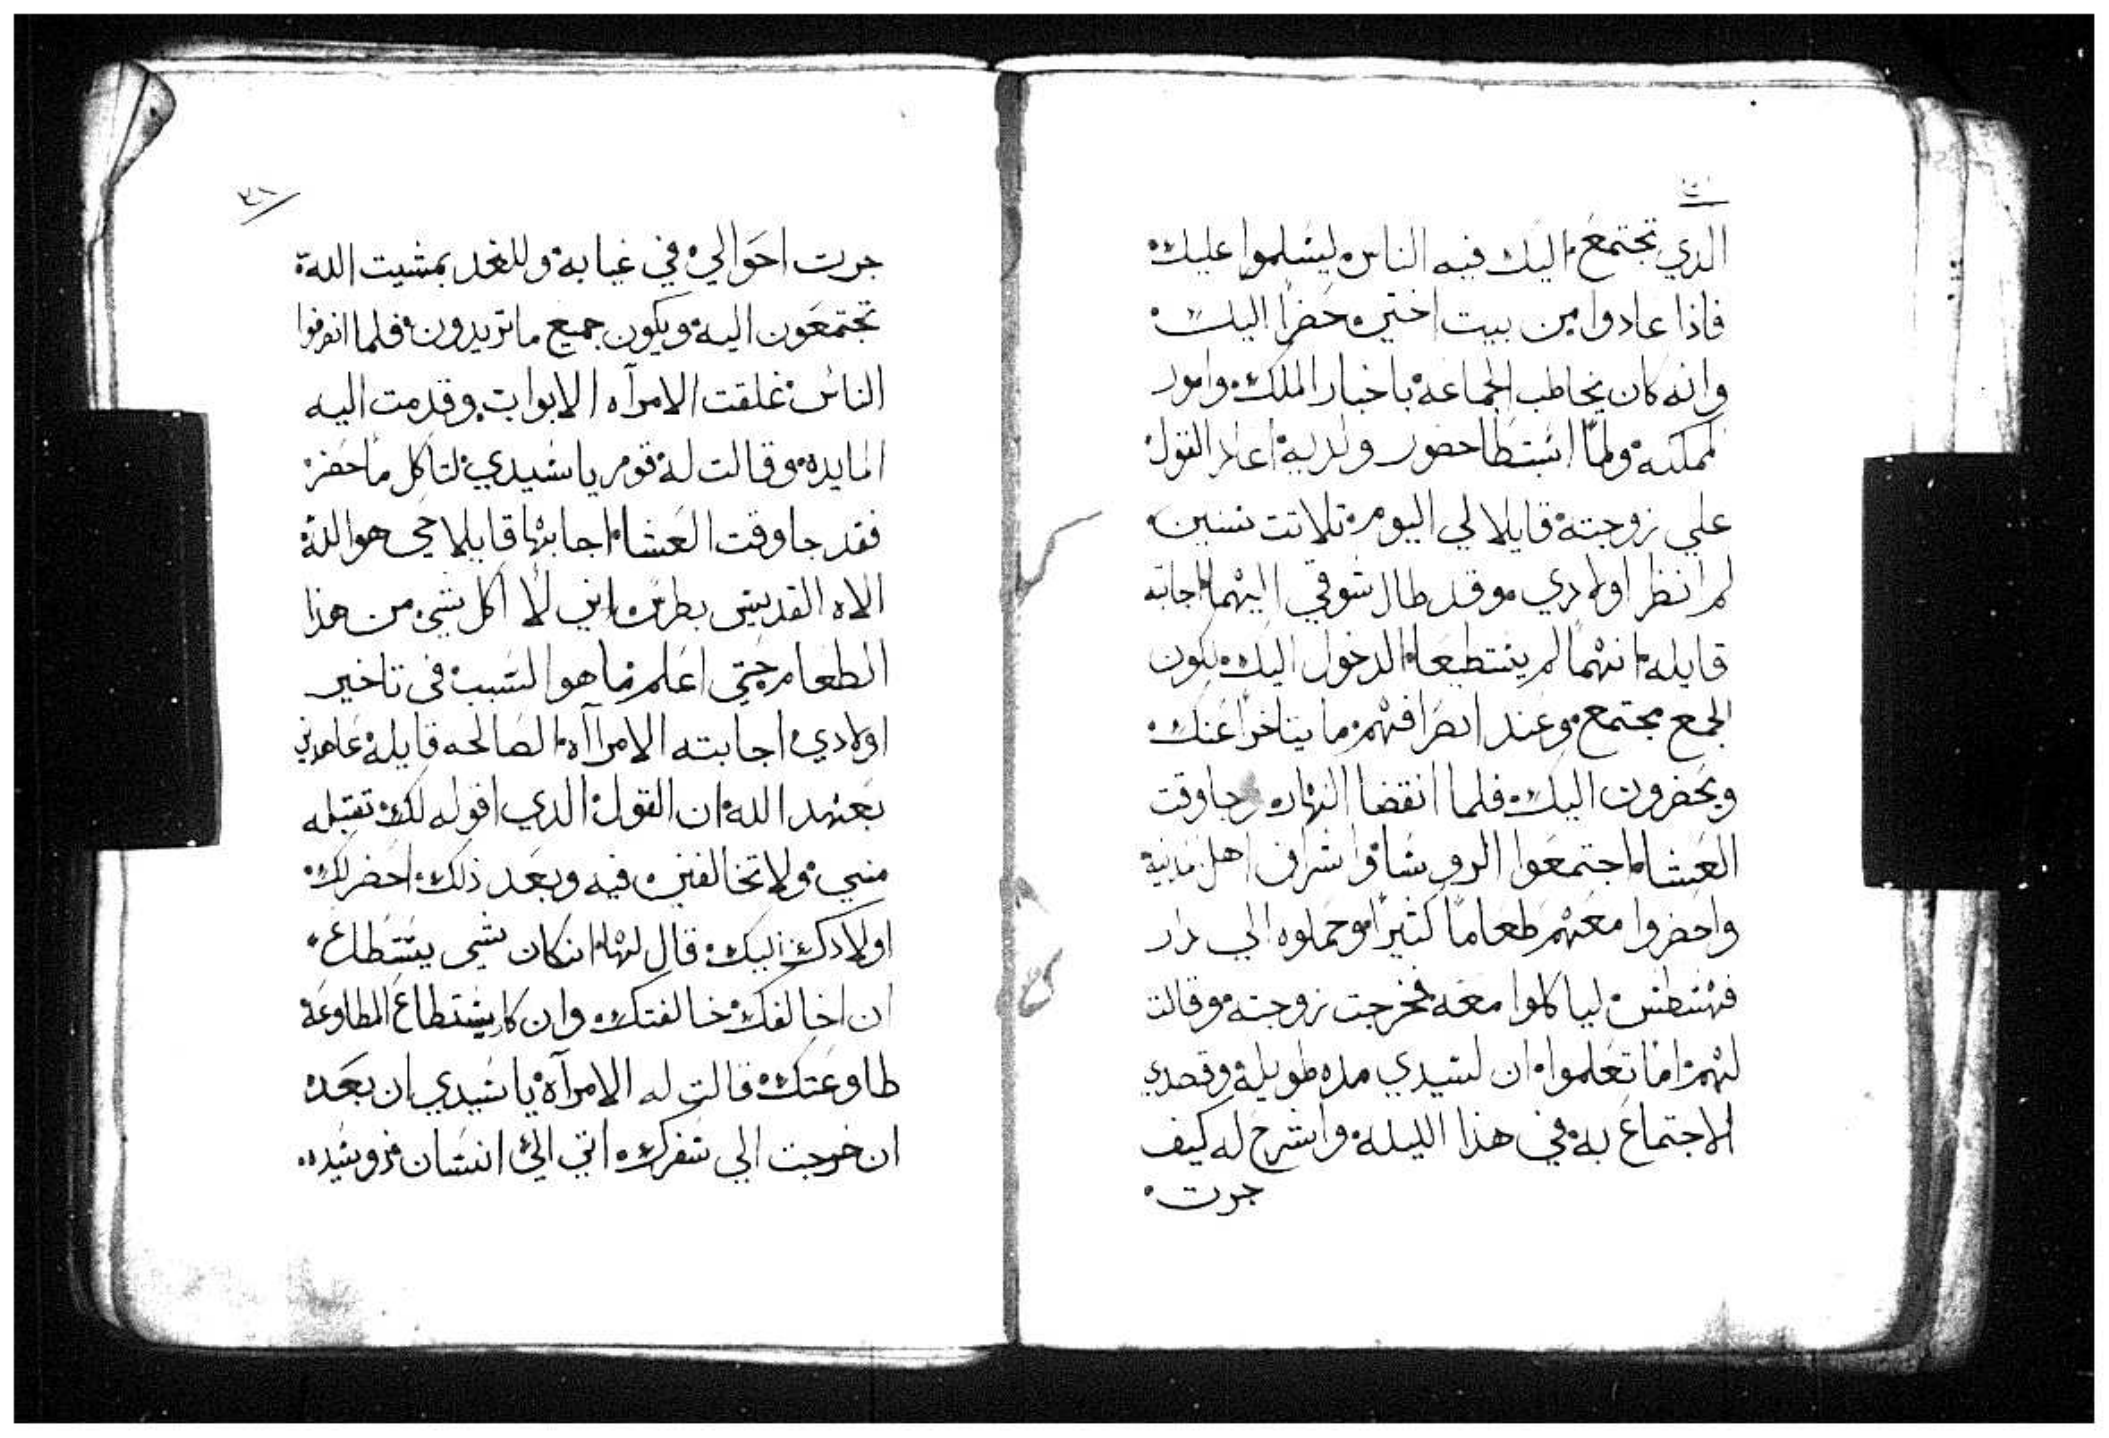 الدي تجتمع اليك فيه الناس ليسلموا عليك
فاذا عادوا من بيت اختي حضرا اليك
وانه كان يخاطب الجماعة باخبار الملك وامور
مملكته ولما استبطا حضور ولديه اعاد القول
علي زوجته قايلا لي اليوم تلاتت سنين
لم انظر اولادي وقد طال شوقي اليهما اجابته
قايله انهما لم يستطيعا الدخول اليك بكون
الجمع مجتمع وعند انصرافهم ما يتاخرا عنك
ويحضرون اليك فلما انقضا النهار وجا وقت
العشا اجتمعوا الروسا واشراف اهل مدينة
واحضروا معهم طعاما كثيرا وحملوه الي دار
ليا كلوا معه فخرجت زوجته وقالت
لهم اما تعلموا ان لسيدي مده طويلة وقصدي
الاجتماع به في هذا الليلة واشرح له كيف
جرت
جرت احوالي في غيابه وللغد بمشيت الله
تجتمعون اليه ويكون جميع ما تريدون فلما انصرفوا
الناس غلقت الامراه الابواب وقدمت اليه
المايده وقالت له قوم يا سيدي لتاكل ما حضر
فقد جا وقت العشا اجابها قايلا حي هو الله
الاه القديس بطرس انني لا اكل شي من هذا
الطعام حتي اعلم ما هو السبب في تاخير
اولادي اجابته الامراه الصالحه قايلة عاهدني
بعهد الله ان القول الدي اقوله لك تقبله
مني ولا تخالفني فيه وبعد ذلك احضر لك
اولادك اليك قال لها ان كان شي يستطاع
ان اخالفك خالفتك وان كان يستطاع المطاوعة
طاوعتك قالت له الامراة يا سيدي ان بعد
ان خرجت الي سفرك اتي الي انسان